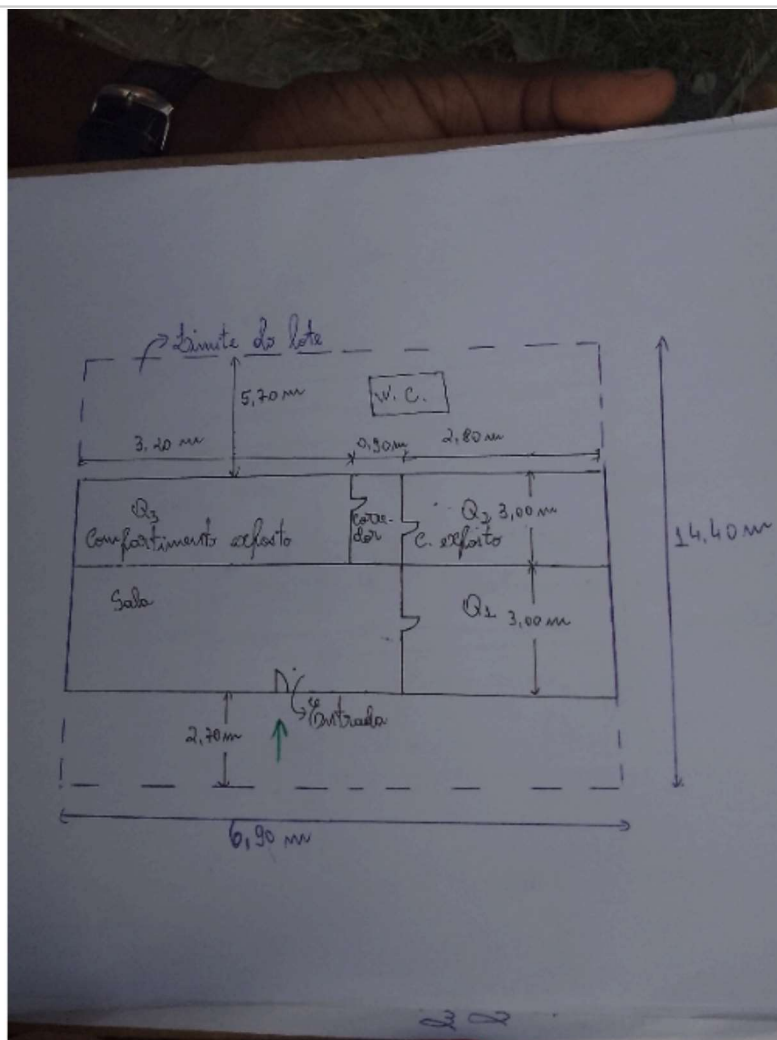 Limite do lote
5,70 m
W.C.
3,20 m
0,90 m
2,80 m
Q3
Compartimento exposto
Corre-
dor
Q2
C. exposto
3,00 m
14,40 m
Sala
Q1
3,00 m
Entrada
2,70 m
6,90 m